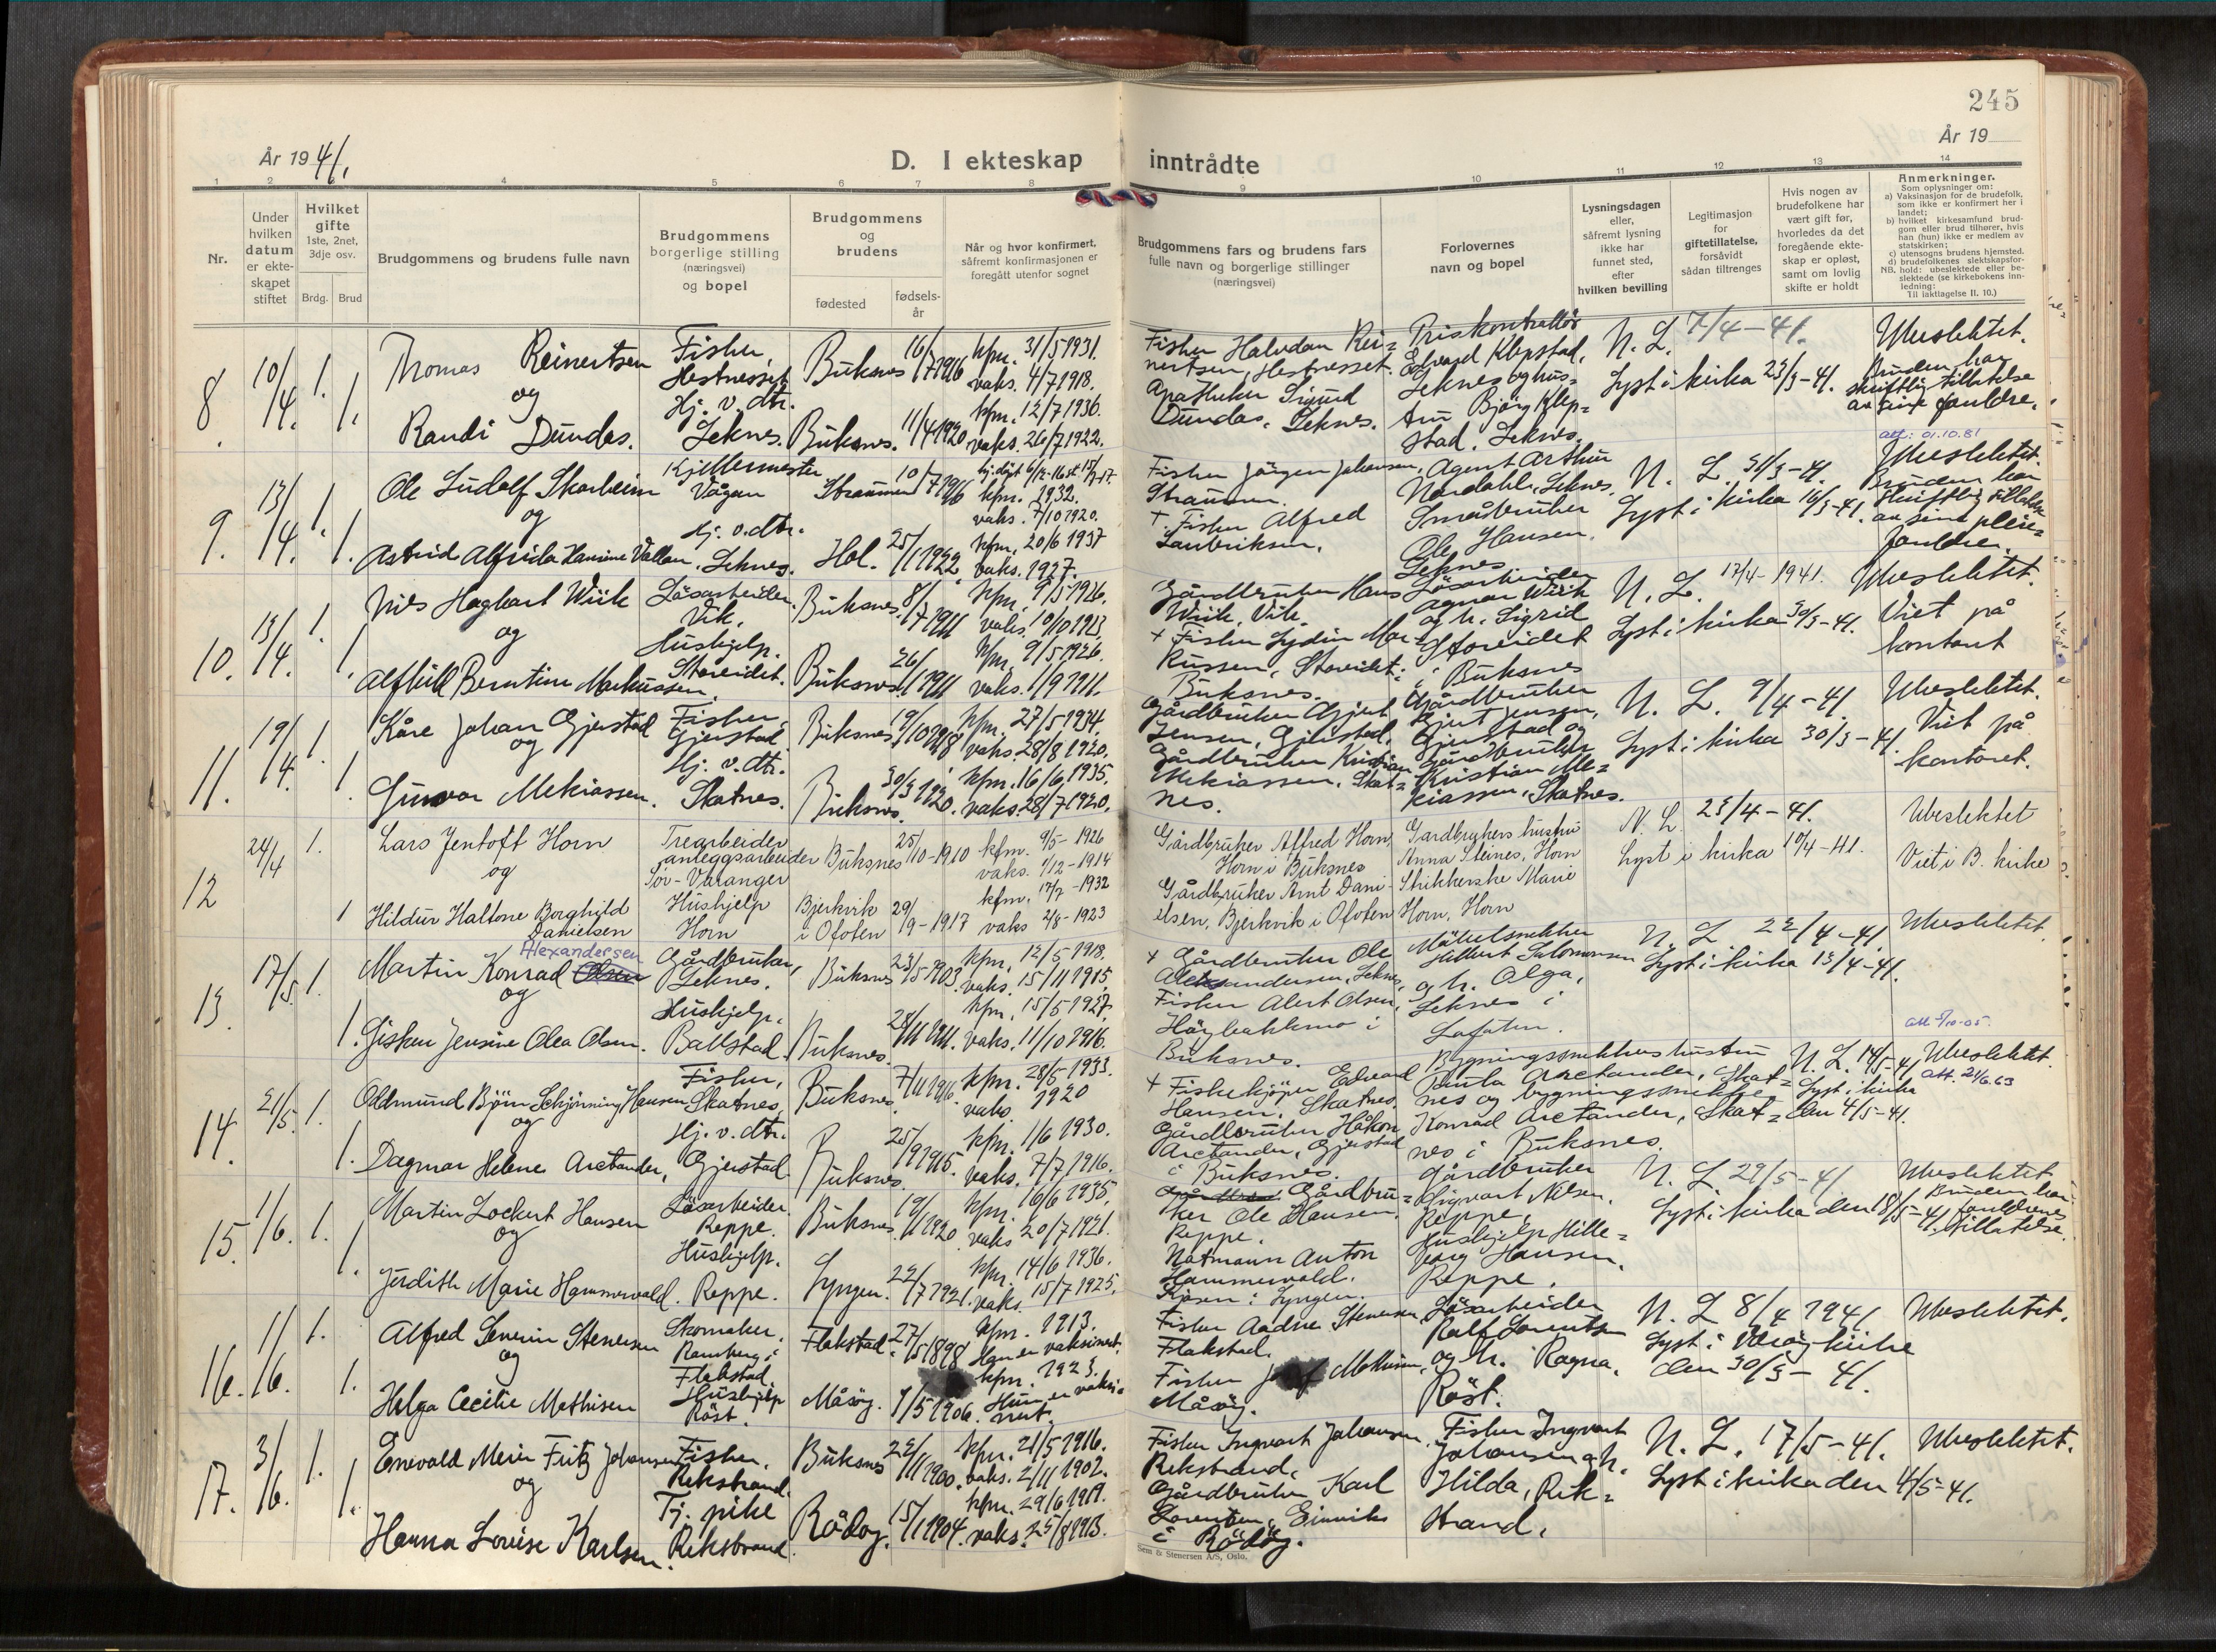 245
År 1941.
År 19
D. I ekteskap inntrådte
1 2 3 4 5 6 7 8 9 10 11 12 13 14
Nr.
Under
hvilken
datum
er ekte-
skapet
stiftet
Hvilket
gifte
1ste, 2net,
3dje osv.
Brdg. Brud
Brudgommens og brudens fulle navn
Brudgommens
borgerlige stilling
(næringsvei)
og bopel
Brudgommens
og
brudens
fødested
fødsels-
år
Når og hvor konfirmert,
såfremt konfirmasjonen er
foregått utenfor sognet
Brudgommens fars og brudens fars
fulle navn og borgerlige stillinger
(næringsvei)
Forlovernes
navn og bopel
Lysningsdagen
eller,
såfremt lysning
ikke har
funnet sted,
efter
hvilken bevilling
Legitimasjon
for
giftetillatelse,
forsåvidt
sådan tiltrenges
Hvis nogen av
brudefolkene har
vært gift før,
hvorledes da det
foregående ekte-
skap er opløst,
samt om lovlig
skifte er holdt
Anmerkninger.
Som oplysninger om:
a) Vaksinasjon for de brudefolk,
som ikke er konfirmert her i
landet;
b) hvilket kirkesamfund brud-
gom eller brud tilhører, hvis
han (hun) ikke er medlem av
statskirken;
c) utensogns brudens hjemsted.
d) brudefolkenes slektskapsfor-
NB. hold: ubeslektede eller be-
slektede (se kirkebokens inn-
ledning:
Til iakttagelse II. 10.)
8. 10/4. 1. 1.
Thomas Reinertsen
og
Randi Dundas.
Fisker,
Hestnesset
Hj. v. dtr.
Leknes.
Buksnes 16/7 1916
Buksnes. 11/4 1920
kfm. 31/5 1931.
vaks. 4/7 1918.
kfm. 12/7 1936.
vaks. 26/7 1922.
Fisker Halvdan Rei=
nertsen, Hestnesset.
Apotheker Sigurd
Dundas, Leknes.
Priskontrollør
Edvard Klepstad,
Leknes og hus=
fru Bjørg Klep=
stad, Leknes.
N. L. 7/4 - 41.
Lyst i kirka 23/3 - 41.
Ubeslektet.
Bruden har
skriftlig tillatelse
av sine foreldre.
att: 01.10.81
9. 13/4. 1. 1.
Ole Ludolf Skarheim
og
Astrid Alfrida Hansine Vallan.
Kjellermester
Vågan
Hj. v. dtr.
Leknes.
Straumen 10/7 1916
Hol. 25/1 1922
kfm. 1932.
vaks. 7/10 1920.
kfm. 20/6 1937
vaks. 1927.
Fisker Jørgen Johansen,
Straumen.
+ Fisker Alfred
Lauriksen.
Agent Arthur
Nordahl, Leknes.
Småbruker
Ole Hansen.
Leknes
N. L. 31/3 - 41.
Lyst i kirka 16/3 - 41.
Ubeslektet.
Bruden har
skriftlig tillatelse
av sine pleie=
foreldre.
10. 13/4. 1. 1.
Nils Hagbart Wiik
og
Alfhild Berntine Markussen.
Løsarbeider.
Vik.
Hushjelp.
Storeidet.
Buksnes. 8/7 1911
Buksnes. 26/1 1911
kfm. 9/5 1926.
vaks. 10/10 1923.
kfm. 9/5 1926.
vaks. 1/9 1911.
Gårdbruker Hans
Wiik, Vik.
+ Fisker Lydin Mar=
kussen, Storeidet i
Buksnes.
Løsarbeider
Agnar Wiik
og h. Sigrid
Storeidet
i Buksnes
N. L. 17/4 - 1941.
Lyst i kirka 30/3 - 41.
Ubeslektet.
Viet på
kontoret
11. 19/4. 1. 1.
Kåre Johan Gjerstad
og
Gunvor Mekiassen.
Fisker,
Gjerstad.
Hj. v. dtr.
Skatnes.
Buksnes. 19/10 1918
Buksnes. 30/3 1920.
kfm. 27/5 1934.
vaks. 28/8 1920.
kfm. 16/6 1935.
vaks. 28/7 1920.
Gårdbruker Gjert
Jensen, Gjerstad.
Gårdbruker Kristian
Mekiassen, Skat=
nes.
Gårdbruker
Gjert Jensen,
Gjerstad og
Gårdbruker
Kristian Me=
kiassen, Skatnes.
N. L. 9/4 - 41.
Lyst i kirka 30/3 - 41.
Ubeslektet.
Viet på
kontoret.
12 24/4 1. 1
Lars Jentoft Horn
og
Hildur Haltone Borghild
Danielsen
Trearbeider
anleggsarbeider
Sør-Varanger
Hushjelp
Horn
Buksnes 25/10-1910
Bjerkvik
i Ofoten 29/9-1917
kfm. 9/5-1926
vaks. 1/12-1914
kfm. 17/7-1932
vaks 2/8-1923
Gårdbruker Alfred Horn,
Horn i Buksnes
Gårdbruker Arnt Dani-
elsen, Bjerkvik i Ofoten
Gardbrukers hustru
Anna Steines, Horn
Strikkerske Marie
Horn, Horn
N. L. 23/4 - 41.
Lyst i kirka 10/4 - 41.
Ubeslektet
Viet i B. kirke
13. 17/5. 1. 1.
Alexandersen
Martin Konrad Olsen
og
Gisken Jensine Olea Olsen.
Gårdbruker,
Leknes.
Hushjelp.
Ballstad.
Buksnes 23/5 1903.
Buksnes. 28/11 1911.
kfm. 12/5 1918.
vaks. 15/11 1915.
kfm. 15/5 1927.
vaks. 11/10 1916.
+ Gårdbruker Ole
Aleksandersen, Leknes,
Fisker Alert Olsen,
Høgbakkmo i
Buksnes.
Møbelsnekker
Hilbert Salomonsen
og h. Olga,
Leknes i
Lofoten.
N. L. 22/4 - 41.
Lyst i kirka 13/4 - 41.
Ubeslektet.
14. 21/5. 1. 1.
Oddmund Bjørn Schjønning Hansen
og
Dagmar Helene Arctander,
Fisker,
Skatnes,
Hj. v. dtr.
Gjerstad.
Buksnes. 7/11 1916.
Buksnes. 25/9 1915.
kfm. 28/5 1933.
vaks. 1920
kfm. 1/6 1930.
vaks. 7/7 1916.
+ Fiskekjøper Edvard
Hansen, Skatnes.
Gårdbruker Håkon
Arctander, Gjerstad
i Buksnes.
Bygningssnekkers hustru
Paula Arctander, Skat=
nes og bygningssnekker
Konrad Arctander, Skat=
nes i Buksnes.
N. L. 14/5 - 41.
Lyst i kirka
den 4/5 - 41.
att 5/10-05.
Ubeslektet.
att. 21/6.63
15. 1/6. 1. 1.
Martin Lockert Hansen
og
Jerdith Marie Hammervold.
Løsarbeider.
Reppe.
Hushjelp.
Reppe.
Buksnes. 19/11 1920
Lyngen. 22/7 1921.
kfm. 16/6 1935.
vaks. 20/7 1921.
kfm. 14/6 1936.
vaks. 15/7 1925.
Gårdbru=
ker Ole Hansen.
Reppe.
Notmann Anton
Hammervold.
Kjosen i Lyngen.
Gårdbruker
Sigvart Nilsen.
Reppe.
Hushjelp Hille=
vig Hansen.
Reppe.
N. L 29/5 - 41
Lyst i kirka den 18/5 - 41.
Ubeslektet.
Bruden har
foreldrenes
tillatelse.
16. 1/6. 1. 1.
Alfred Severin Stenersen
og
Helga Cecilie Mathisen
Skomaker.
Ramberg i
Flakstad.
Hushjelp
Røst.
Flakstad. 27/5 1898
Måsøy. 1/5 1906.
kfm. 1913.
Han er vaksinert.
kfm. 1923.
Hun er vaksi=
nert.
Fisker Aadne Stenersen
Flakstad.
Fisker J Mathisen,
Måsøy.
Løsarbeider
Ralf Lorentsen
og h. Ragna.
Røst.
N. L 8/4 1941
Lyst i Værøy kirke
den 30/3 - 41.
Ubeslektet.
17. 3/6. 1. 1.
Enevald Meier Fritz Johansen
og
Hanna Lovise Karlsen.
Fisker.
Rekstrand.
Tj. pike
Rekstrand.
Buksnes 22/11 1900.
Rødøy. 15/1 1904.
kfm. 21/5 1916.
vaks. 2/11 1902.
kfm. 29/6 1919.
vaks. 25/8 1913.
Fisker Ingvart Johansen
Rekstrand.
Gårdbruker Karl
Lorentsen, Einviks
i Rødøy.
Fisker Ingvart
Johansen og h.
Hilda, Rek=
strand.
N. L. 17/5 - 41.
Lyst i kirka den 4/5 - 41.
Ubeslektet.
Sem & Stenersen A/S, Oslo.